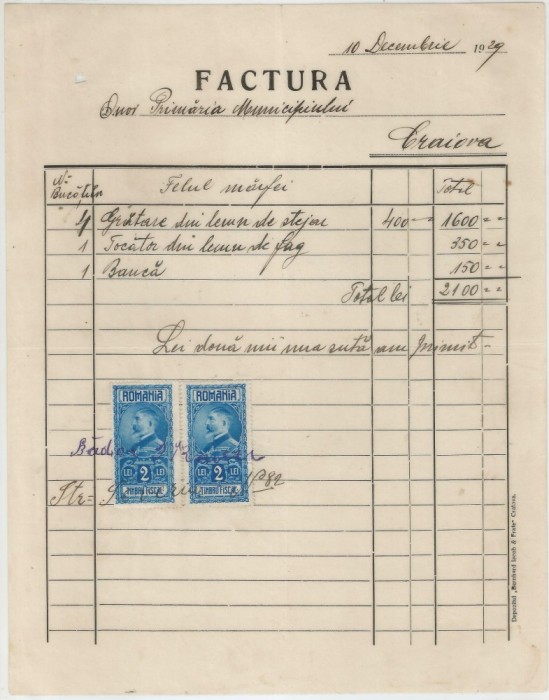 10 Decembrie 1929
FACTURA
Dnor Primăria Municipiului
Craiova
No Bucăților Felul mărfei Total
4 Grătare din lemn de stejar 400 = 1600 = =
1 Tocător din lemn de fag 350 = =
1 Bancă 150 = =
Total lei 2100 = =
Lei două mii una sută am primit =
ROMANIA ROMANIA
LEI 2 LEI LEI 2 LEI
TIMBRU FISCAL TIMBRU FISCAL
Str=
Depozitul „Bernhard Iacob & Frate" Craiova.